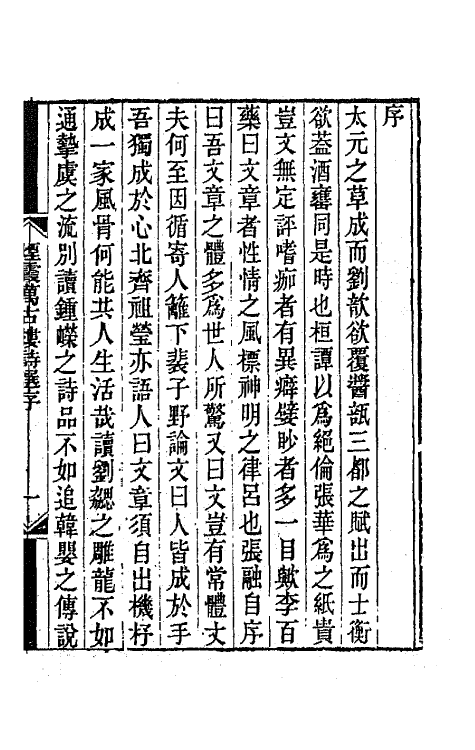 序
太元之草成而劉歆欲覆醬瓿三都之賦出而士衡
欲葢酒罋同是時也桓譚以爲絕倫張華爲之紙貴
豈文無定評嗜痂者有異癖嬖眇者多一目歟李百
藥曰文章者性情之風標神明之律呂也張融自序
曰吾文章之體多爲世人所驚又曰文豈有常體丈
夫何至因循寄人籬下裴子野論文曰人皆成於手
吾獨成於心北齊祖瑩亦語人曰文章須自出機杼
成一家風骨何能共人生活哉讀劉勰之雕龍不如
通摯虞之流別讀鍾嶸之詩品不如追韓嬰之傳說
煙霞萬古樓詩選序
一